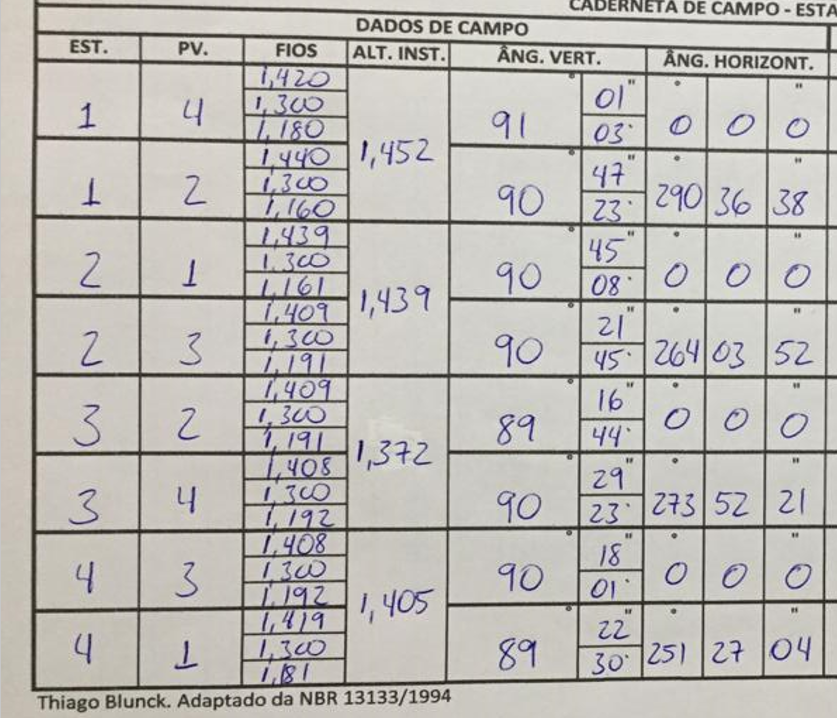 CADERNETA DE CAMPO - ESTA
DADOS DE CAMPO
EST. PV. FIOS ALT. INST. ÂNG. VERT. ÂNG. HORIZONT.
1 4 1,420 1,300 1,180 1,452 91° 01" 03' 0° 0 0"
1 2 1,440 1,300 1,160 90° 47" 23' 290° 36 38"
2 1 1,439 1,300 1,161 1,439 90° 45" 08' 0° 0 0"
2 3 1,409 1,300 1,191 90° 21" 45' 264° 03 52"
3 2 1,409 1,300 1,191 1,372 89° 16" 44' 0° 0 0"
3 4 1,408 1,300 1,192 90° 29" 23' 273° 52 21"
4 3 1,408 1,300 1,192 1,405 90° 18" 01' 0° 0 0"
4 1 1,419 1,300 1,181 89° 22" 30' 251° 27 04"
Thiago Blunck. Adaptado da NBR 13133/1994